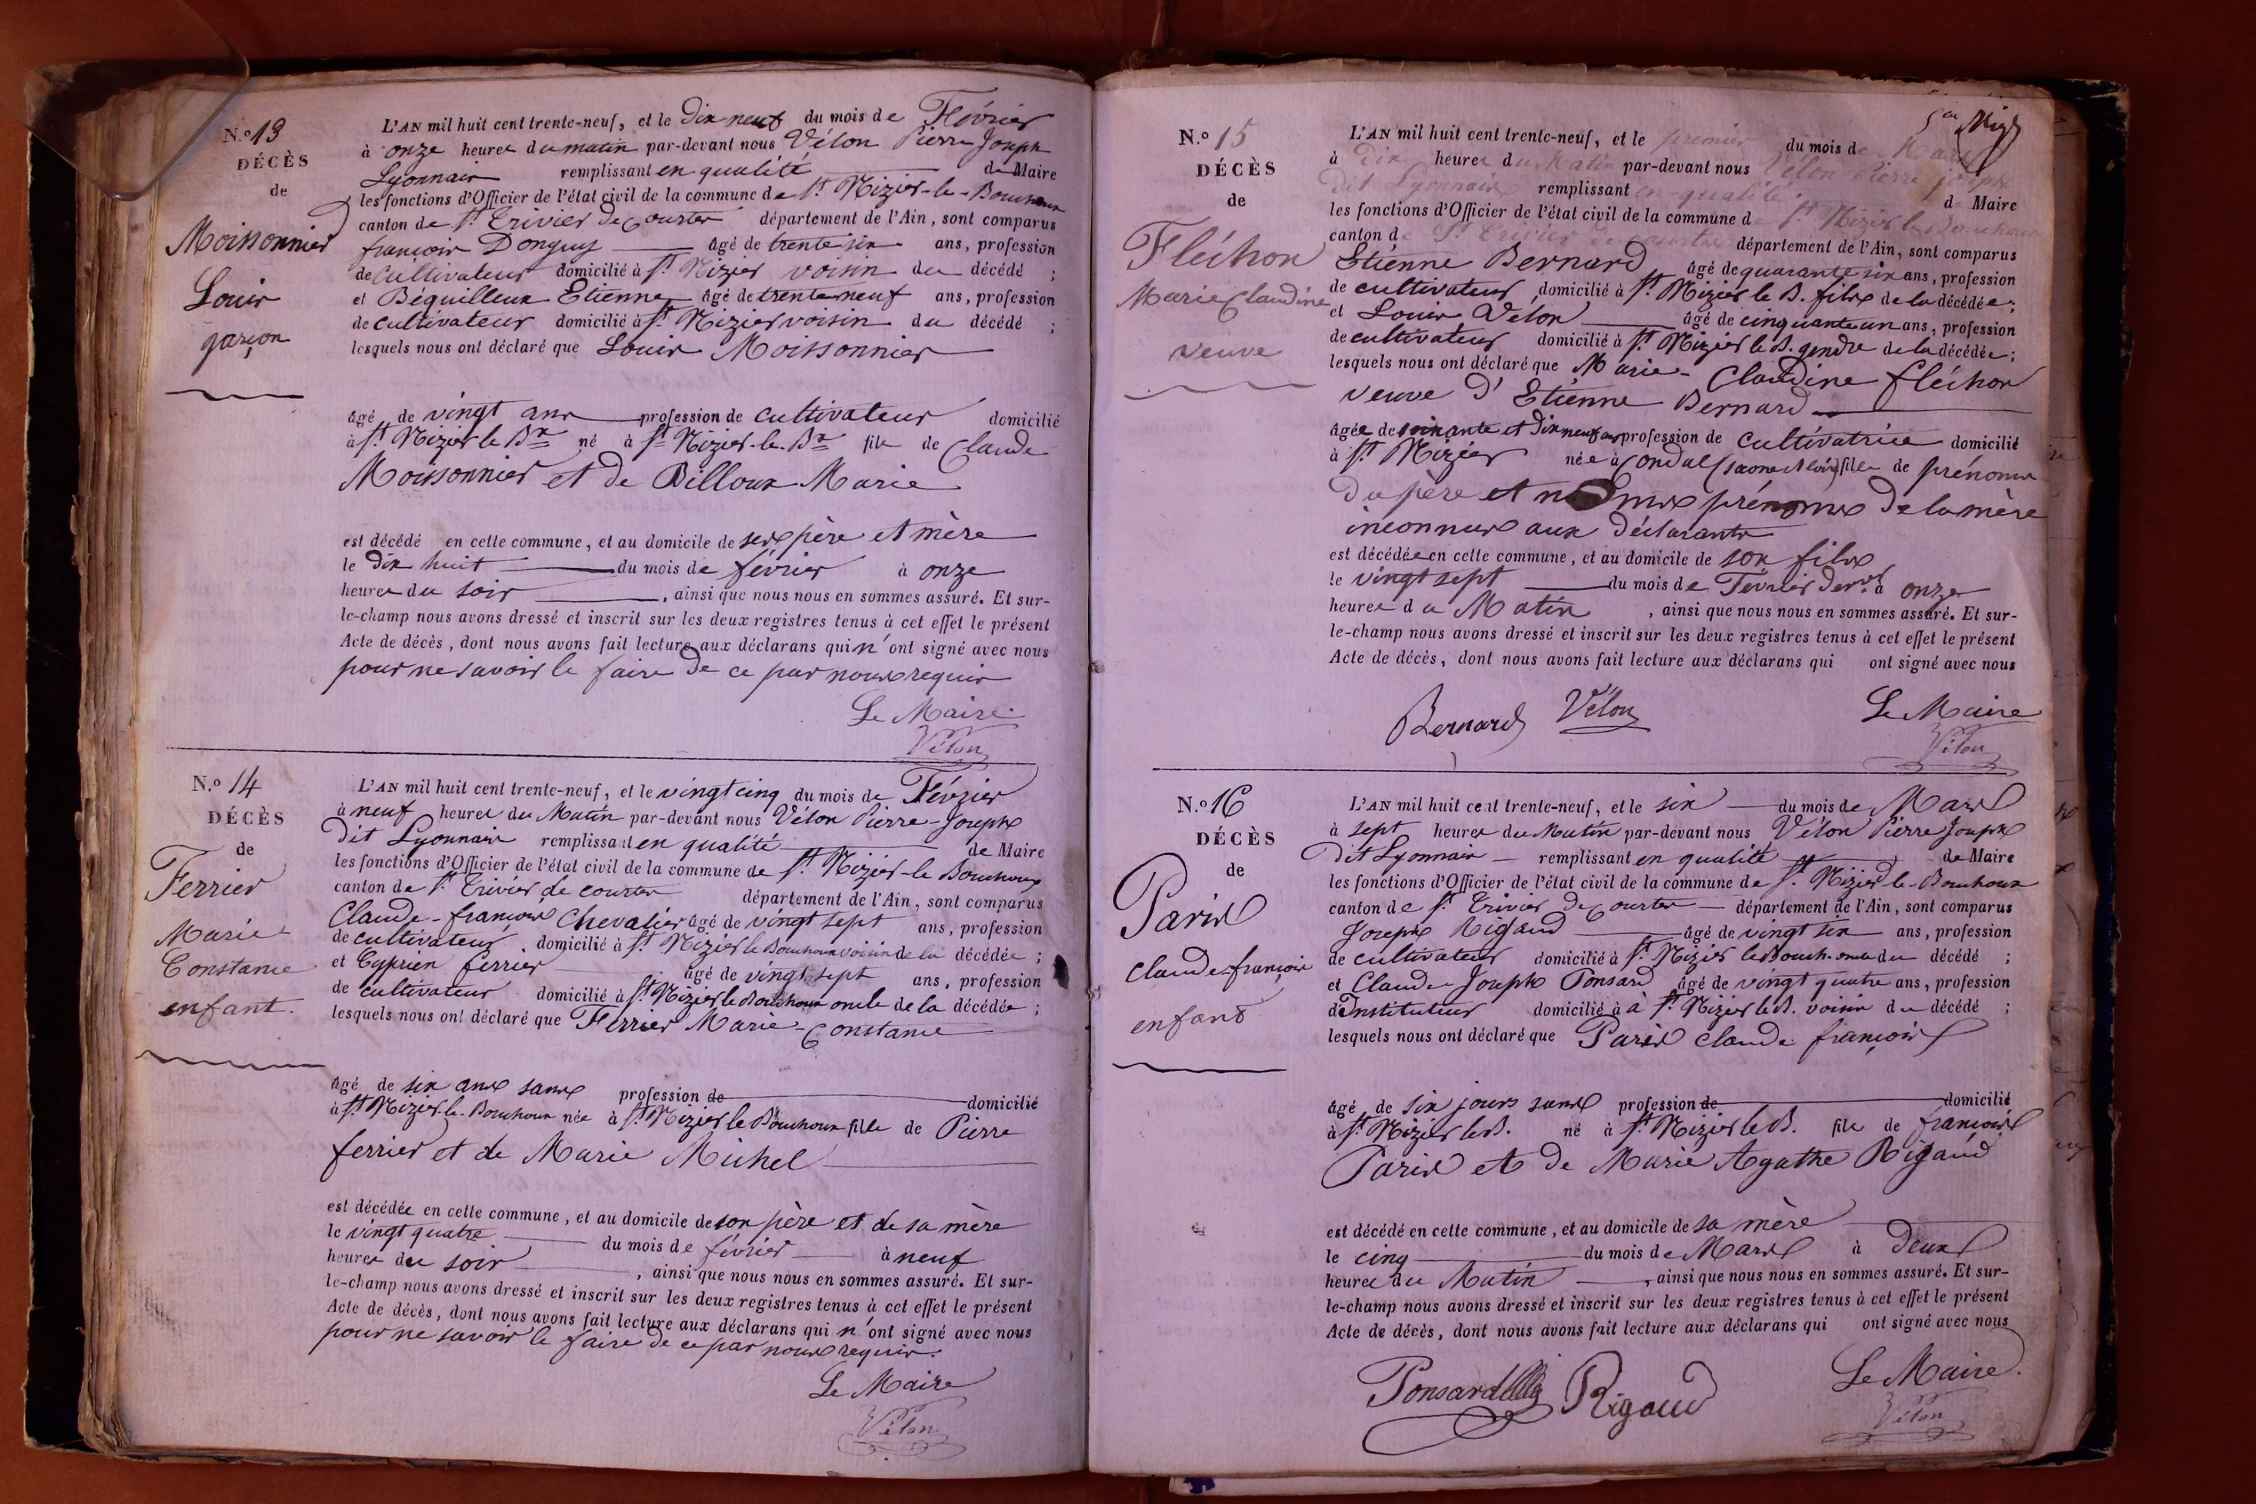 N.º 13
DÉCÈS
de
Moissonnier
Louis
garçon
L'AN mil huit cent trente-neuf, et le dix neuf du mois de Février
à onze heures du matin par-devant nous Vélon Pierre Joseph
Lyonnais remplissant en qualité de Maire
les fonctions d'Officier de l'état civil de la commune de St. Nizier-le-Bouchoux
canton de St. Trivier de Courtes département de l'Ain, sont comparus
françois Donguy âgé de trente six ans, profession
de cultivateur domicilié à St. Nizier voisin du décédé ;
et Béquilleux Etienne âgé de trente neuf ans, profession
de cultivateur domicilié à St. Nizier voisin du décédé ;
lesquels nous ont déclaré que Louis Moissonnier
âgé de vingt ans profession de cultivateur domicilié
à St. Nizier le Bx né à St. Nizier-le-Bx fils de Claude
Moissonnier et de Billoux Marie
est décédé en cette commune, et au domicile de ses père et mère
le dix huit du mois de février à onze
heures du soir , ainsi que nous nous en sommes assuré. Et sur-
le-champ nous avons dressé et inscrit sur les deux registres tenus à cet effet le présent
Acte de décès, dont nous avons fait lecture aux déclarans qui n'ont signé avec nous
pour ne savoir le faire de ce par nous requis
Le Maire
Vélon
N.º 14
DÉCÈS
de
Ferrier
Marie
Constance
enfant.
L'AN mil huit cent trente-neuf, et le vingt cinq du mois de Février
à neuf heures du Matin par-devant nous Vélon Pierre-Joseph
dit Lyonnais remplissant en qualité de Maire
les fonctions d'Officier de l'état civil de la commune de St. Nizier-le Bouchoux
canton de St. Trivier de courtes département de l'Ain, sont comparus
Claude-françois Chevalier âgé de vingt sept ans, profession
de cultivateur domicilié à St. Nizier le Bouchoux voisin de la décédée ;
et Cyprien ferrier âgé de vingt sept ans, profession
de cultivateur domicilié à St. Nizier le Bouchoux oncle de la décédée ;
lesquels nous ont déclaré que Ferrier Marie-Constance
âgé de six ans sans profession de domicilié
à St. Nizier-le-Bouchoux née à St. Nizier le Bouchoux fille de Pierre
ferrier et de Marie Michel
est décédée en cette commune, et au domicile de son père et de sa mère
le vingt quatre du mois de février à neuf
heures du soir , ainsi que nous nous en sommes assuré. Et sur-
le-champ nous avons dressé et inscrit sur les deux registres tenus à cet effet le présent
Acte de décès, dont nous avons fait lecture aux déclarans qui n'ont signé avec nous
pour ne savoir le faire de ce par nous requis.
Le Maire
Vélon
N.º 15
DÉCÈS
de
Fléchon
Marie Claudine
veuve
L'AN mil huit cent trente-neuf, et le premier du mois de Mars
à dix heures du Matin par-devant nous Vélon Pierre Joseph
dit Lyonnais remplissant en qualité de Maire
les fonctions d'Officier de l'état civil de la commune de St. Nizier le Bouchoux
canton de St. Trivier de courtes département de l'Ain, sont comparus
Etienne Bernard âgé de quarante six ans, profession
de cultivateur domicilié à St. Nizier le B. fils de la décédée ;
et Louis Vélon âgé de cinquante un ans, profession
de cultivateur domicilié à St. Nizier le B. gendre de la décédée ;
lesquels nous ont déclaré que Marie-Claudine fléchon
veuve d'Etienne Bernard
âgée de soixante et dix neuf ans profession de cultivatrice domicilié
à St. Nizier née à Condal (saone et loire) fille de prénoms
du père et noms prénoms de la mère
inconnus aux déclarants
est décédée en cette commune, et au domicile de son fils
le vingt sept du mois de Février der. à onze
heures du Matin , ainsi que nous nous en sommes assuré. Et sur-
le-champ nous avons dressé et inscrit sur les deux registres tenus à cet effet le présent
Acte de décès, dont nous avons fait lecture aux déclarans qui ont signé avec nous
Bernard Vélon Le Maire
Vélon
N.º 16
DÉCÈS
de
Paris
claude-françois
enfant
L'AN mil huit cent trente-neuf, et le six du mois de Mars
à sept heures du Matin par-devant nous Vélon Pierre Joseph
dit Lyonnais remplissant en qualité de Maire
les fonctions d'Officier de l'état civil de la commune de St. Nizier le-Bouchoux
canton de St. Trivier de Courtes département de l'Ain, sont comparus
Joseph Rigaud âgé de vingt six ans, profession
de cultivateur domicilié à St. Nizier le Bouch. oncle du décédé ;
et Claude Joseph Ponsard âgé de vingt quatre ans, profession
d'Instituteur domicilié à à St. Nizier le B. voisin du décédé ;
lesquels nous ont déclaré que Paris claude françois
âgé de six jours sans profession de domicilié
à St. Nizier le B. né à St. Nizier le B. fils de françois
Paris et de Marie Agathe Rigaud
est décédé en cette commune, et au domicile de sa mère
le cinq du mois de Mars à deux
heures du Matin , ainsi que nous nous en sommes assuré. Et sur-
le-champ nous avons dressé et inscrit sur les deux registres tenus à cet effet le présent
Acte de décès, dont nous avons fait lecture aux déclarans qui ont signé avec nous
Ponsard Rigaud Le Maire.
Vélon